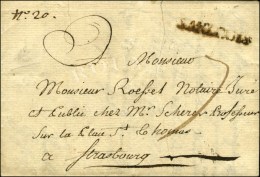 N.º 20.
A Monsieur
Monsieur Roessel Notaire Juré
et Public chez Mr. Scherer Professeur
Sur la Place St. Thomas
a Strasbourg